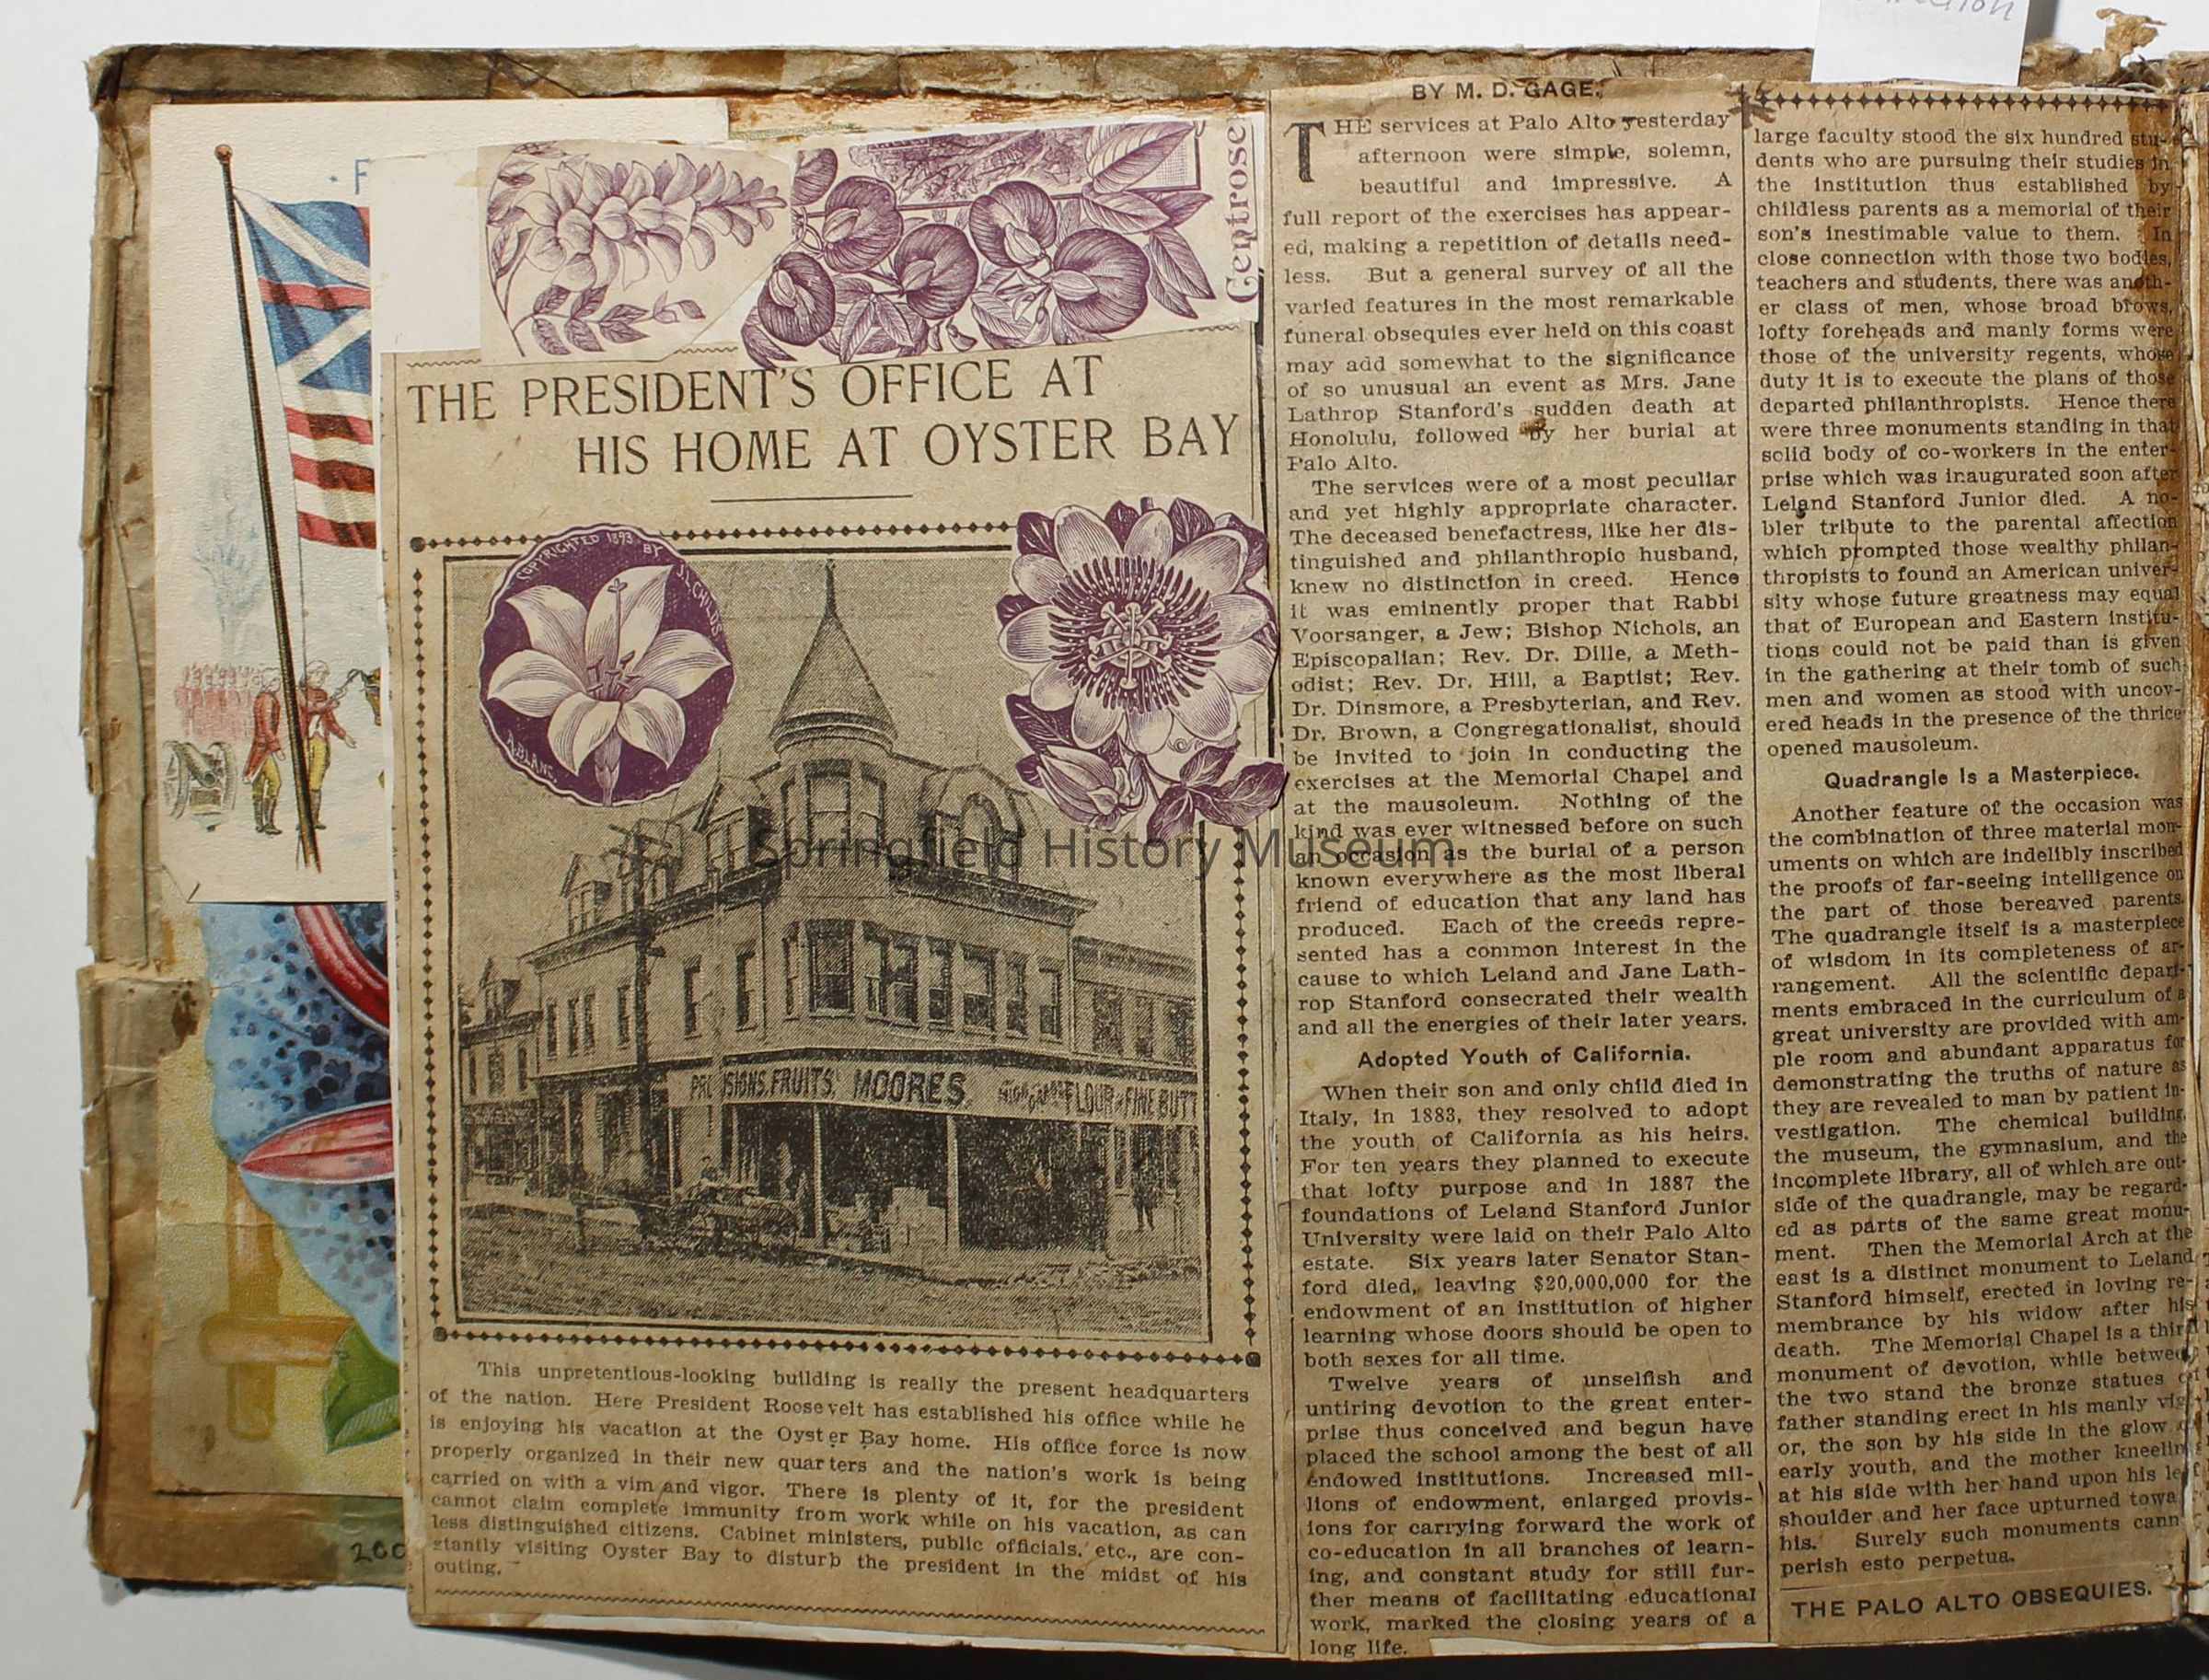 Centrose
THE PRESIDENT'S OFFICE AT
HIS HOME AT OYSTER BAY
COPYRIGHTED 1893 BY J.L. CHILDS
A. BLANC.
MOORES
FRUITS,
FLOUR
FINE BUTT
This unpretentious-looking building is really the present headquarters
of the nation. Here President Roosevelt has established his office while he
is enjoying his vacation at the Oyster Bay home. His office force is now
properly organized in their new quarters and the nation's work is being
carried on with a vim and vigor. There is plenty of it, for the president
cannot claim complete immunity from work while on his vacation, as can
less distinguished citizens. Cabinet ministers, public officials, etc., are con-
stantly visiting Oyster Bay to disturb the president in the midst of his
outing.
200
Springfield History Museum
BY M. D. GAGE.
THE services at Palo Alto yesterday
afternoon were simple, solemn,
beautiful and impressive. A
full report of the exercises has appear-
ed, making a repetition of details need-
less. But a general survey of all the
varied features in the most remarkable
funeral obsequies ever held on this coast
may add somewhat to the significance
of so unusual an event as Mrs. Jane
Lathrop Stanford's sudden death at
Honolulu, followed by her burial at
Palo Alto.
The services were of a most peculiar
and yet highly appropriate character.
The deceased benefactress, like her dis-
tinguished and philanthropic husband,
knew no distinction in creed. Hence
it was eminently proper that Rabbi
Voorsanger, a Jew; Bishop Nichols, an
Episcopalian; Rev. Dr. Dille, a Meth-
odist; Rev. Dr. Hill, a Baptist; Rev.
Dr. Dinsmore, a Presbyterian, and Rev.
Dr. Brown, a Congregationalist, should
be invited to join in conducting the
exercises at the Memorial Chapel and
at the mausoleum. Nothing of the
kind was ever witnessed before on such
an occasion as the burial of a person
known everywhere as the most liberal
friend of education that any land has
produced. Each of the creeds repre-
sented has a common interest in the
cause to which Leland and Jane Lath-
rop Stanford consecrated their wealth
and all the energies of their later years.
Adopted Youth of California.
When their son and only child died in
Italy, in 1883, they resolved to adopt
the youth of California as his heirs.
For ten years they planned to execute
that lofty purpose and in 1887 the
foundations of Leland Stanford Junior
University were laid on their Palo Alto
estate. Six years later Senator Stan-
ford died, leaving $20,000,000 for the
endowment of an institution of higher
learning whose doors should be open to
both sexes for all time.
Twelve years of unselfish and
untiring devotion to the great enter-
prise thus conceived and begun have
placed the school among the best of all
endowed institutions. Increased mil-
lions of endowment, enlarged provis-
ions for carrying forward the work of
co-education in all branches of learn-
ing, and constant study for still fur-
ther means of facilitating educational
work, marked the closing years of a
long life.
large faculty stood the six hundred stu-
dents who are pursuing their studies in
the institution thus established by
childless parents as a memorial of their
son's inestimable value to them. In
close connection with those two bodies,
teachers and students, there was anoth-
er class of men, whose broad brows,
lofty foreheads and manly forms were
those of the university regents, whose
duty it is to execute the plans of those
departed philanthropists. Hence there
were three monuments standing in that
solid body of co-workers in the enter-
prise which was inaugurated soon after
Leland Stanford Junior died. A no-
bler tribute to the parental affection
which prompted those wealthy philan-
thropists to found an American univer-
sity whose future greatness may equal
that of European and Eastern institu-
tions could not be paid than is given
in the gathering at their tomb of such
men and women as stood with uncov-
ered heads in the presence of the thrice
opened mausoleum.
Quadrangle Is a Masterpiece.
Another feature of the occasion was
the combination of three material mon-
uments on which are indelibly inscribed
the proofs of far-seeing intelligence on
the part of those bereaved parents.
The quadrangle itself is a masterpiece
of wisdom in its completeness of ar-
rangement. All the scientific depart-
ments embraced in the curriculum of a
great university are provided with am-
ple room and abundant apparatus for
demonstrating the truths of nature as
they are revealed to man by patient in-
vestigation. The chemical building,
the museum, the gymnasium, and the
incomplete library, all of which are out-
side of the quadrangle, may be regard-
ed as parts of the same great monu-
ment. Then the Memorial Arch at the
east is a distinct monument to Leland
Stanford himself, erected in loving re-
membrance by his widow after his
death. The Memorial Chapel is a third
monument of devotion, while betwee
the two stand the bronze statues of
father standing erect in his manly vig
or, the son by his side in the glow
early youth, and the mother kneelin
at his side with her hand upon his le
shoulder and her face upturned towa
his. Surely such monuments cann
perish esto perpetua.
THE PALO ALTO OBSEQUIES.